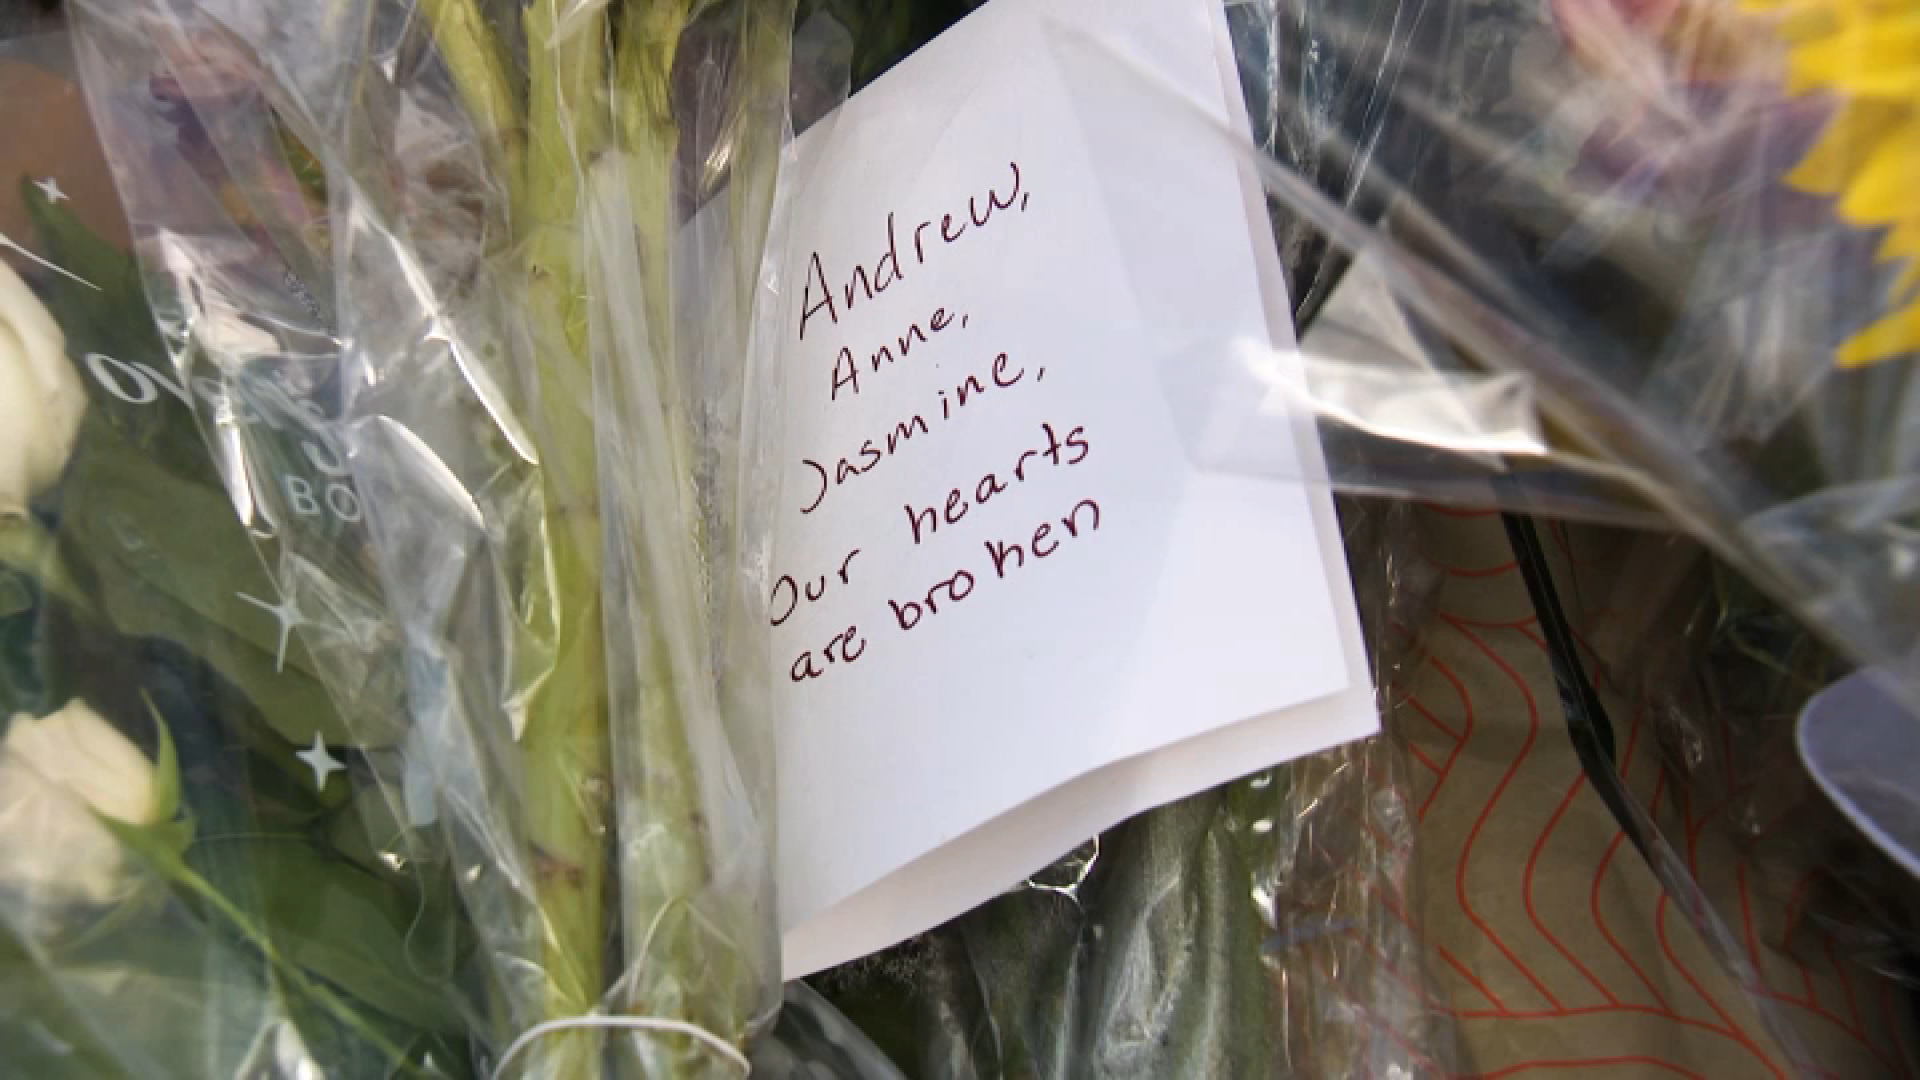 Andrew,
Anne,
Jasmine,
Our hearts
are broken
BO